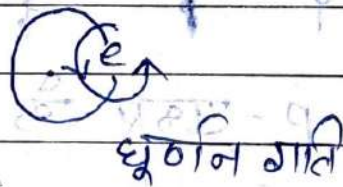 e
घूर्णन गति